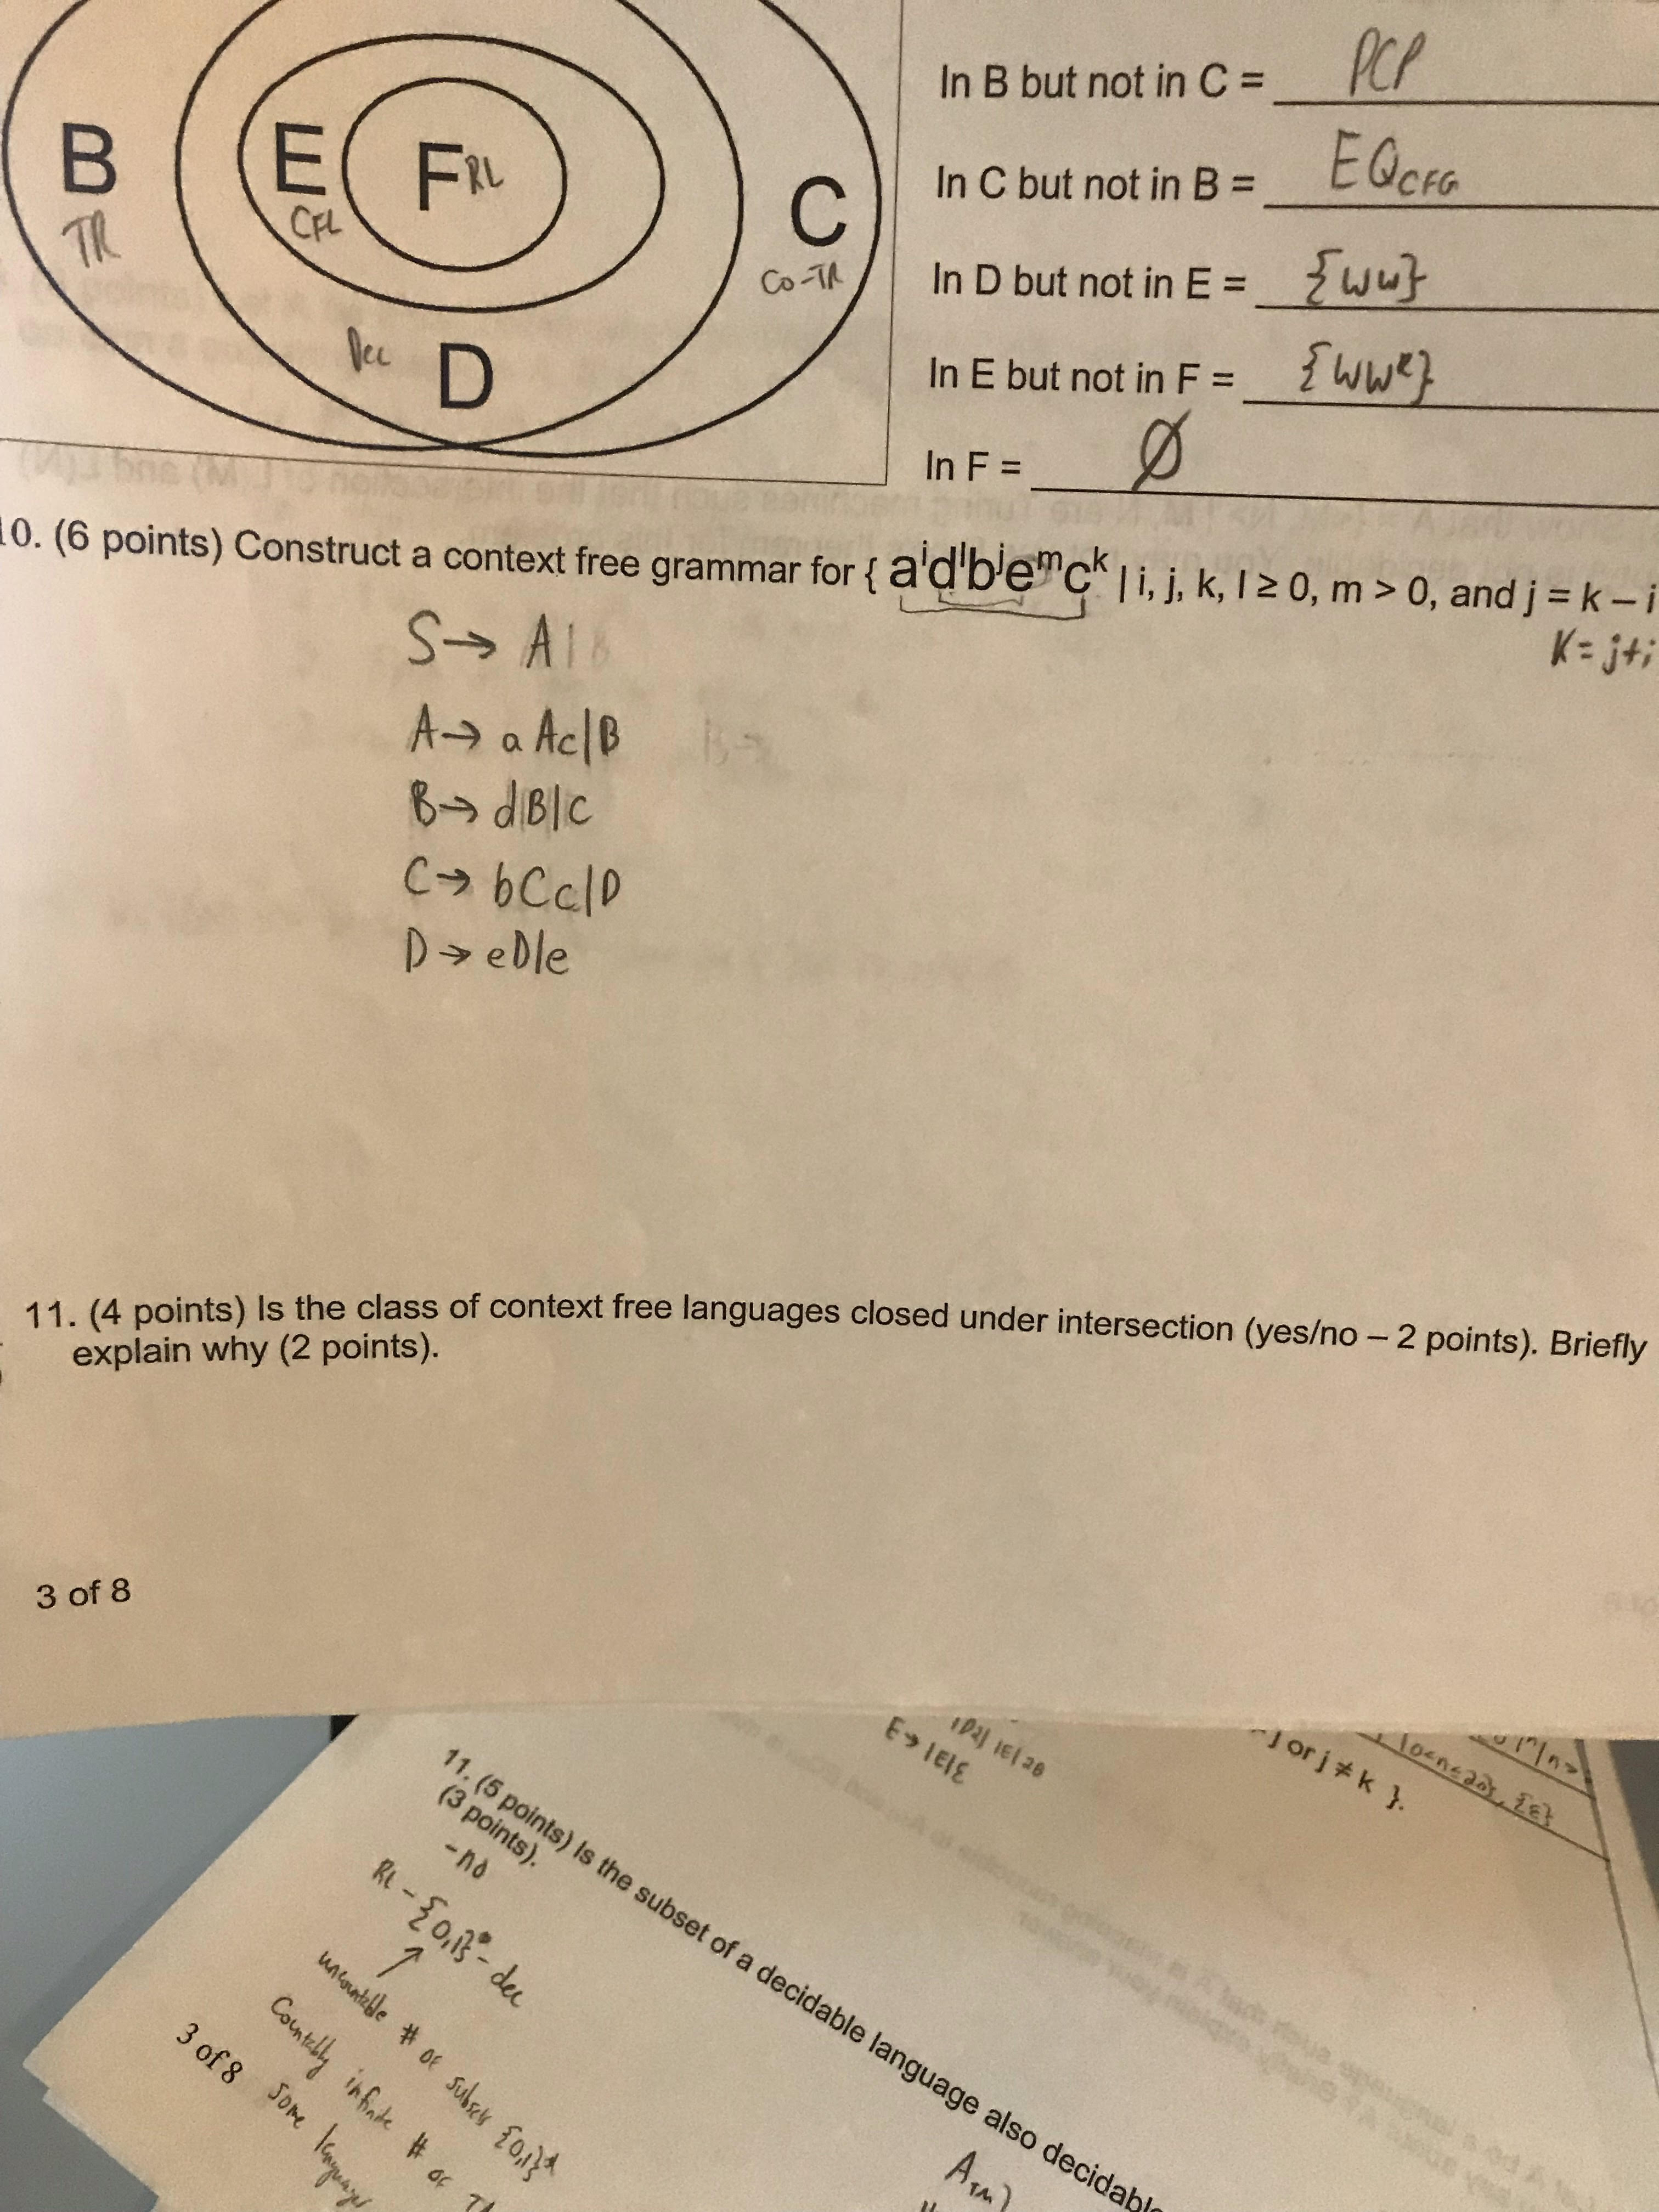 B
TR
E
CFL
F RL
C
Co-TR
Dec
D
In B but not in C = PCP
In C but not in B = EQCFG
In D but not in E = {ww}
In E but not in F = {wwᴿ}
In F = Ø
10. (6 points) Construct a context free grammar for { aⁱdˡbʲeᵐcᵏ | i, j, k, l ≥ 0, m > 0, and j = k – i
K = j+i
S → A |
A → aAc|B
B → dB|C
C → bCc|D
D → eD|e
11. (4 points) Is the class of context free languages closed under intersection (yes/no – 2 points). Briefly
explain why (2 points).
3 of 8
E → 1E|ε
j or j ≠ k }.
11. (5 points) Is the subset of a decidable language also decidable
(3 points).
- no
RL - {0,1}* - dec
uncountable # of subsets {0,1}*
Countably infinite # of
some language
3 of 8
ATM